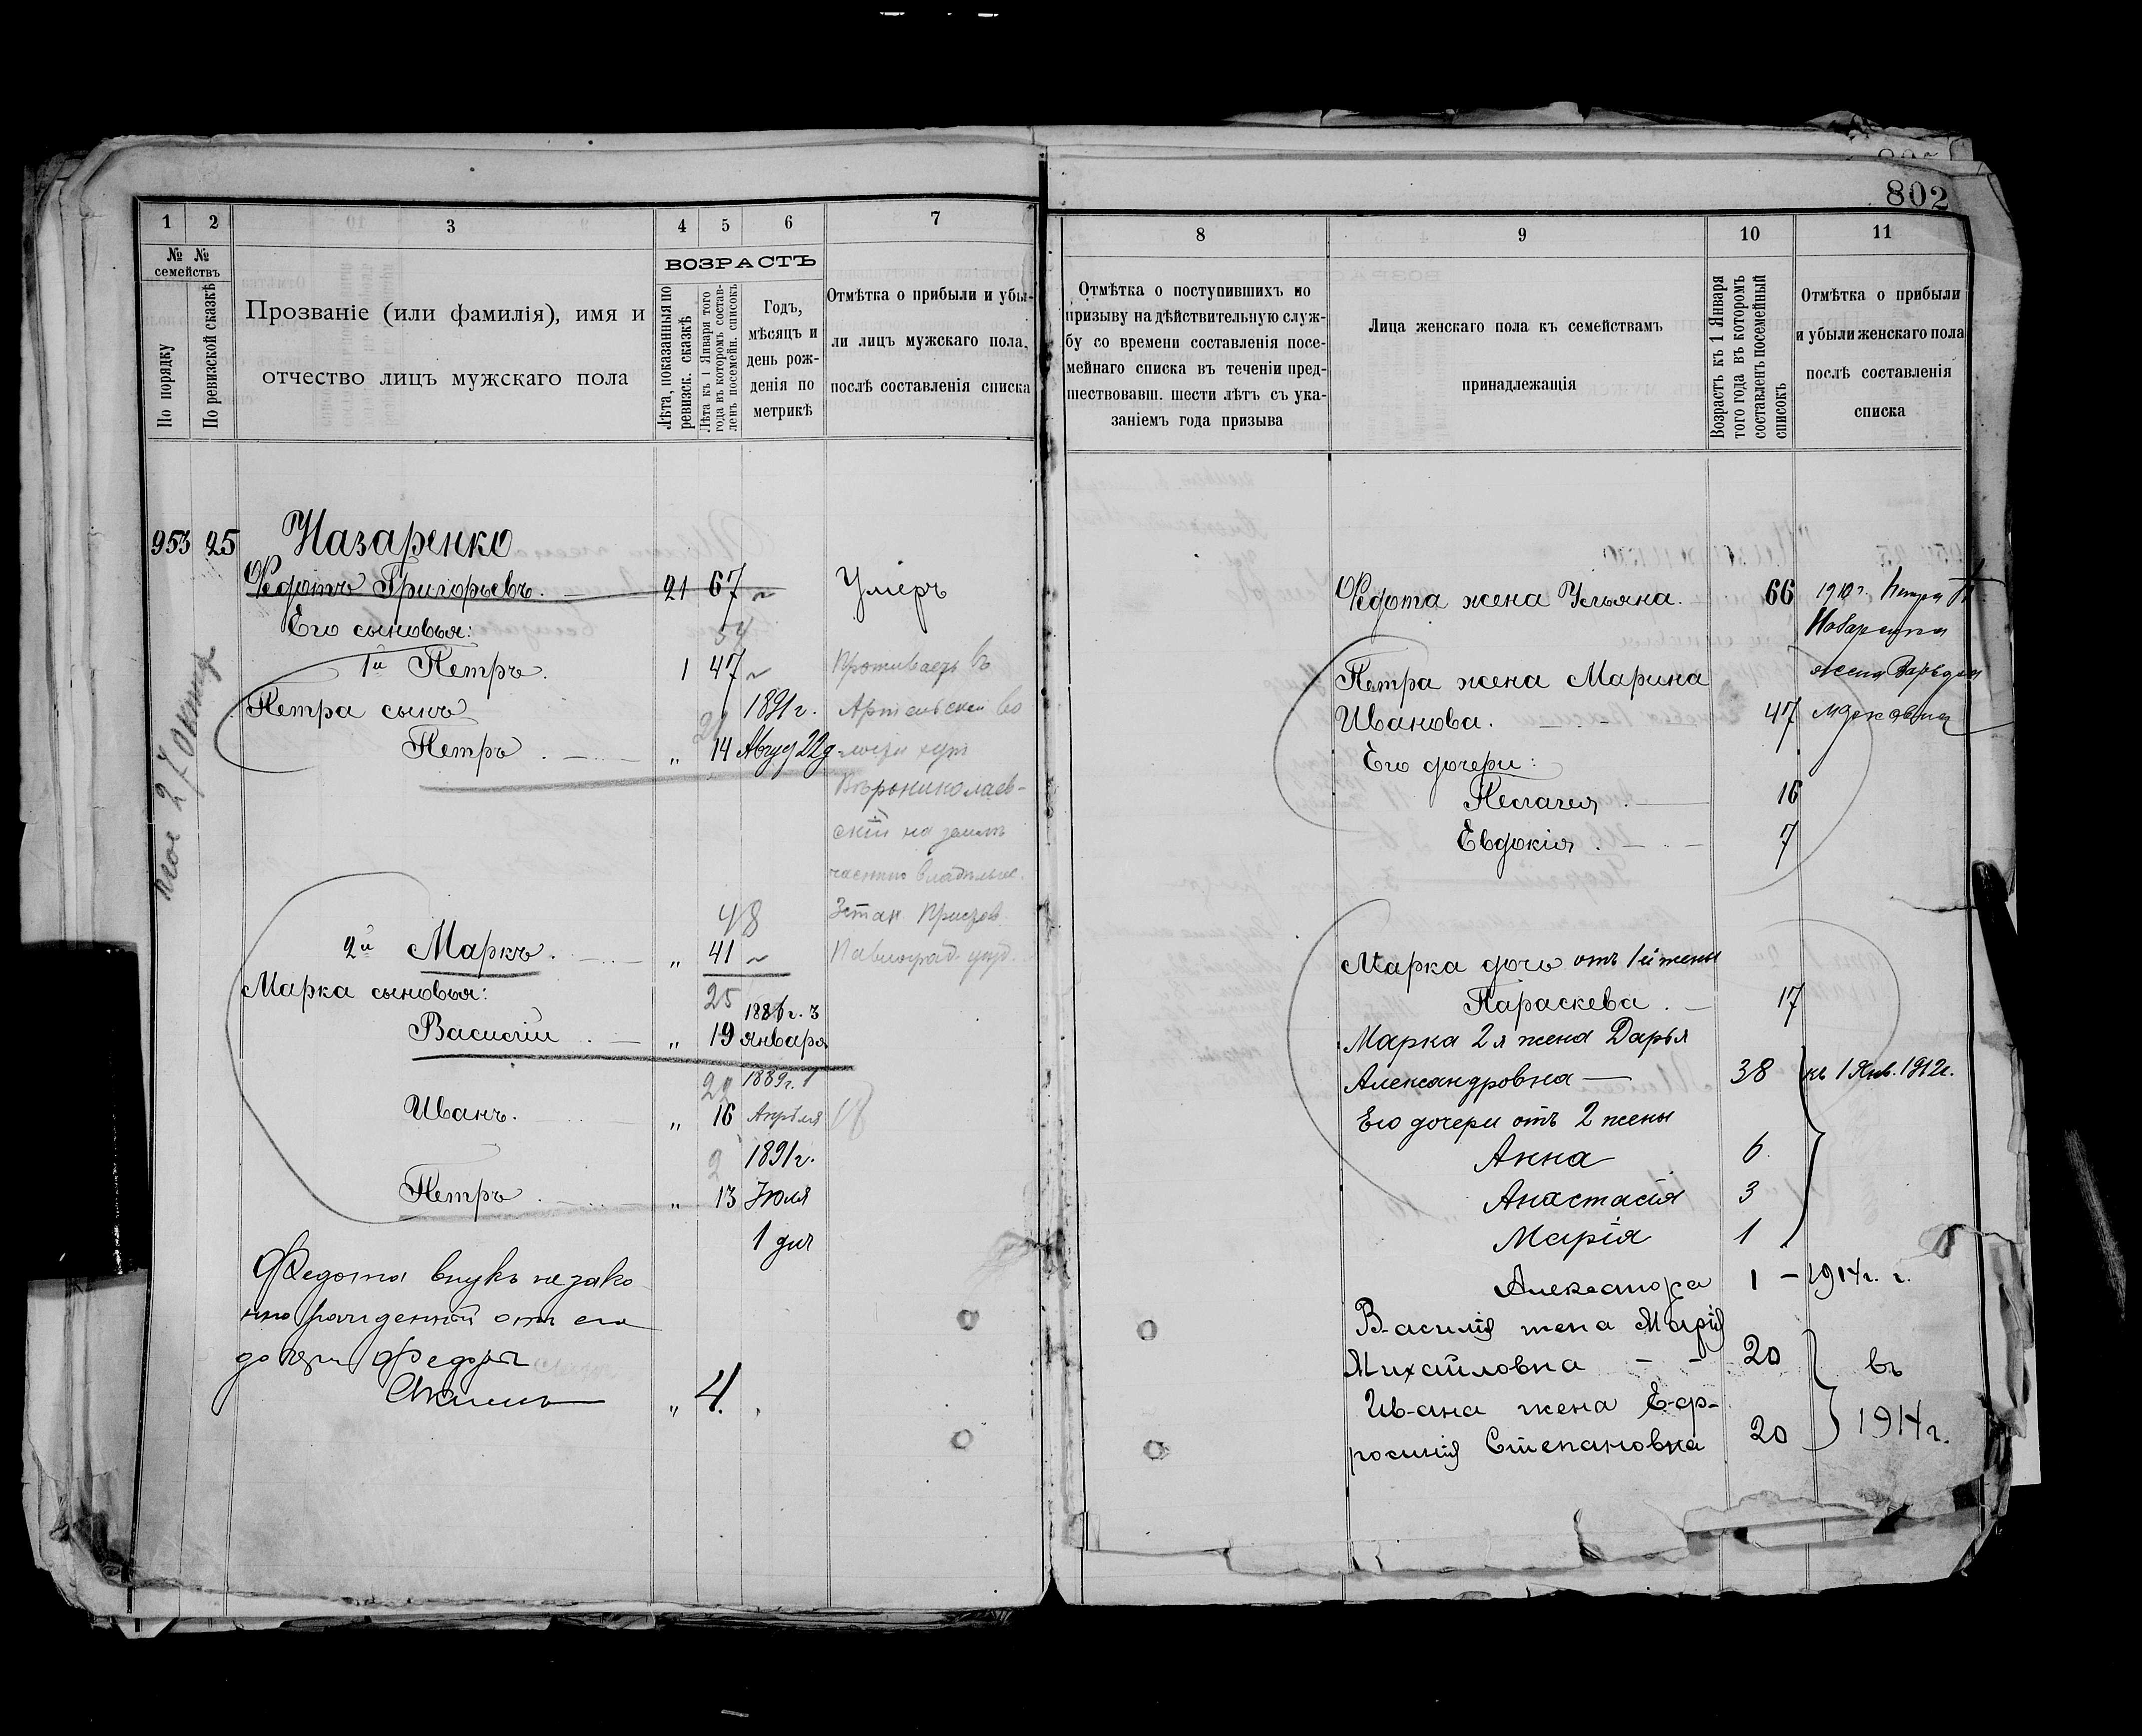 802
1 2 3 4 5 6 7
№ № семействъ
По порядку
По ревизской сказкѣ
Прозваніе (или фамилія), имя и
отчество лицъ мужскаго пола
ВОЗРАСТЪ
Лѣта, показанныя по
ревизск. сказкѣ
Лѣта къ 1 Января того
года въ которомъ состав-
ленъ посемейн. списокъ
Годъ,
мѣсяцъ и
день рож-
денія по
метрикѣ
Отмѣтка о прибыли и убы-
ли лицъ мужскаго пола,
послѣ составленія списка
953 25 Назаренко
Федотъ Григорьевъ. 21 67 Умеръ
Его сыновья: 54
1й Петръ. 1 47 Проживаетъ въ
Петра сынъ 1891г.
Петръ „ 14 Авгус 22д
Вѣрониколаев-
скій на земл
частно владѣльче.
48
2й Маркъ. „ 41 Павлоград. уѣзд.
Марка сыновья: 25 1886г. 3
Василій „ 19 января
22 1889г. 1
Иванъ. „ 16 Апрѣля
1891г.
Петръ „ 13 Іюля
1 дня
Федота внукъ незако-
нно рожденный отъ его
дочери Федоры
Акимъ „ 4.
27 Октяб
8 9 10 11
Отмѣтка о поступившихъ по
призыву на дѣйствительную служ-
бу со времени составленія посе-
мейнаго списка въ теченіи пред-
шествовавш. шести лѣтъ съ ука-
заніемъ года призыва
Лица женскаго пола къ семействамъ
принадлежащія
Возрастъ къ 1 Января
того года въ которомъ
составленъ посемейный
списокъ
Отмѣтка о прибыли
и убыли женскаго пола
послѣ составленія
списка
Федота жена Ульяна. 66 1910г. Петра
Назаренка
Петра жена Марина жена Варвара
Иванова. 47
Его дочери:
Пелагея 16
Евдокія 7
Марка дочь отъ 1й жены
Параскева 17
Марка 2я жена Дарья
Александровна 38 къ 1 Янв. 1912г.
Его дочери отъ 2 жены
Анна 6
Анастасія 3
Марія 1
Александра 1 – 1914г. г.
Василія жена Марія
Михайловна 20 въ
Ивана жена Еф-
росинія Степановна 20 1914г.